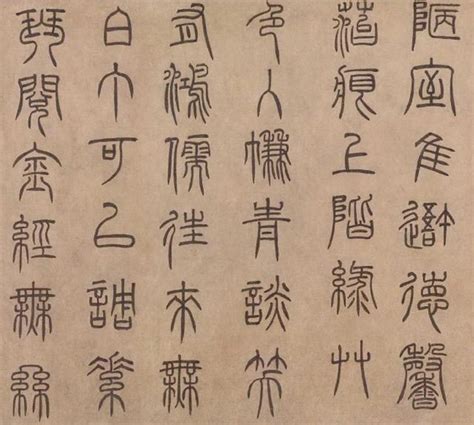 陋室惟吾德馨
苔痕上階綠草
色入簾青談笑
有鴻儒往來無
白丁可以調素
琴閱金經無絲